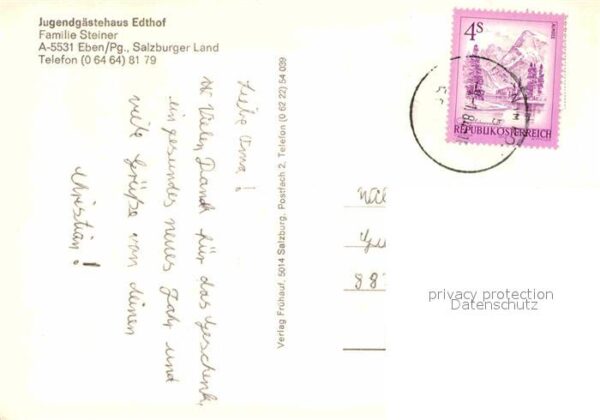 Jugendgästehaus Edthof
Familie Steiner
A-5531 Eben/Pg., Salzburger Land
Telefon (0 64 64) 81 79
Liebe Oma!
Vielen Dank für das Geschenk,
ein gesundes neues Jahr und
viele Grüße von deinem
Christian!
Verlag Frühauf, 5014 Salzburg, Postfach 2, Telefon (0 62 22) 54 039
4S
REPUBLIK ÖSTERREICH
privacy protection
Datenschutz